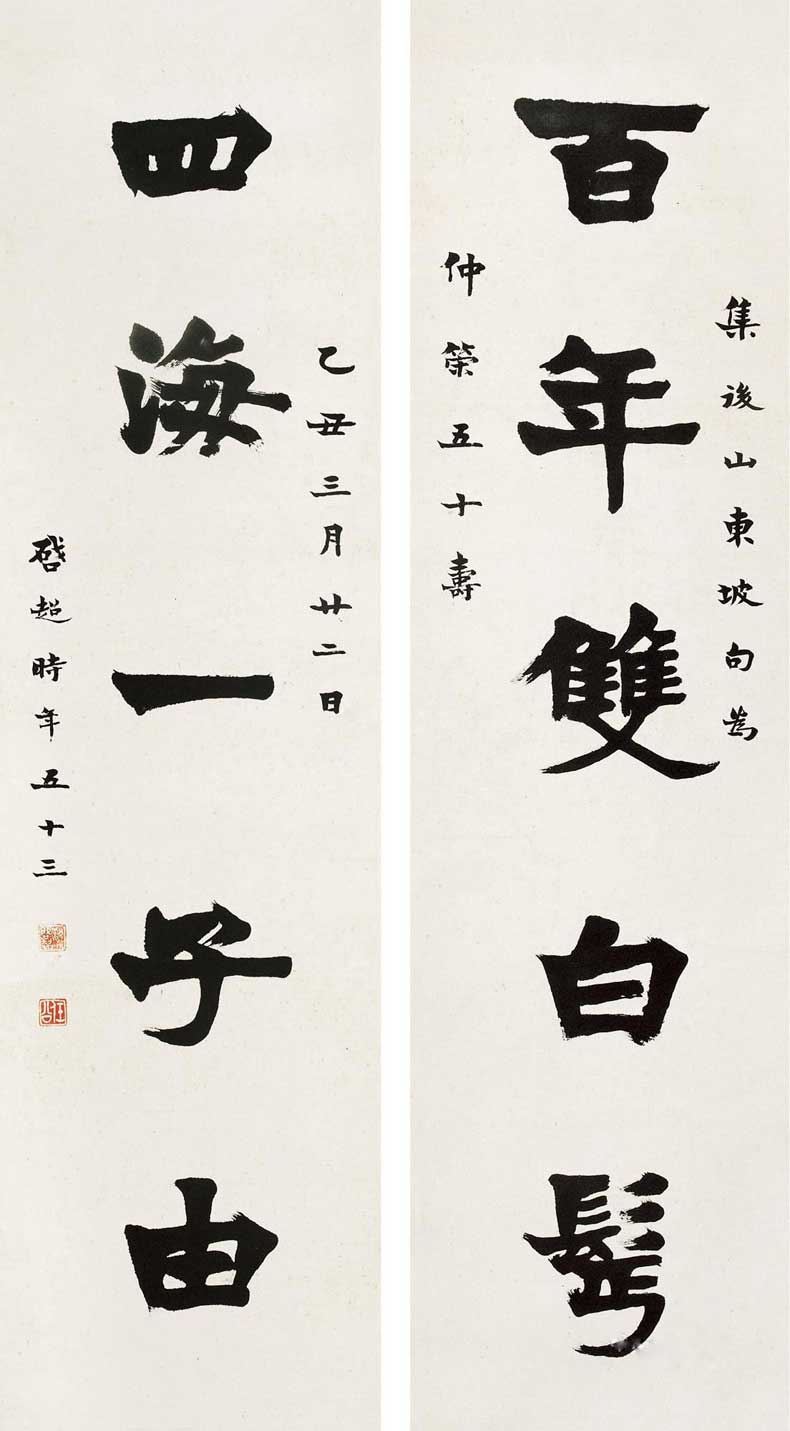 集後山東坡句為
百年雙白鬢
仲策五十壽
乙丑三月廿二日
四海一子由
啟超時年五十三
任公